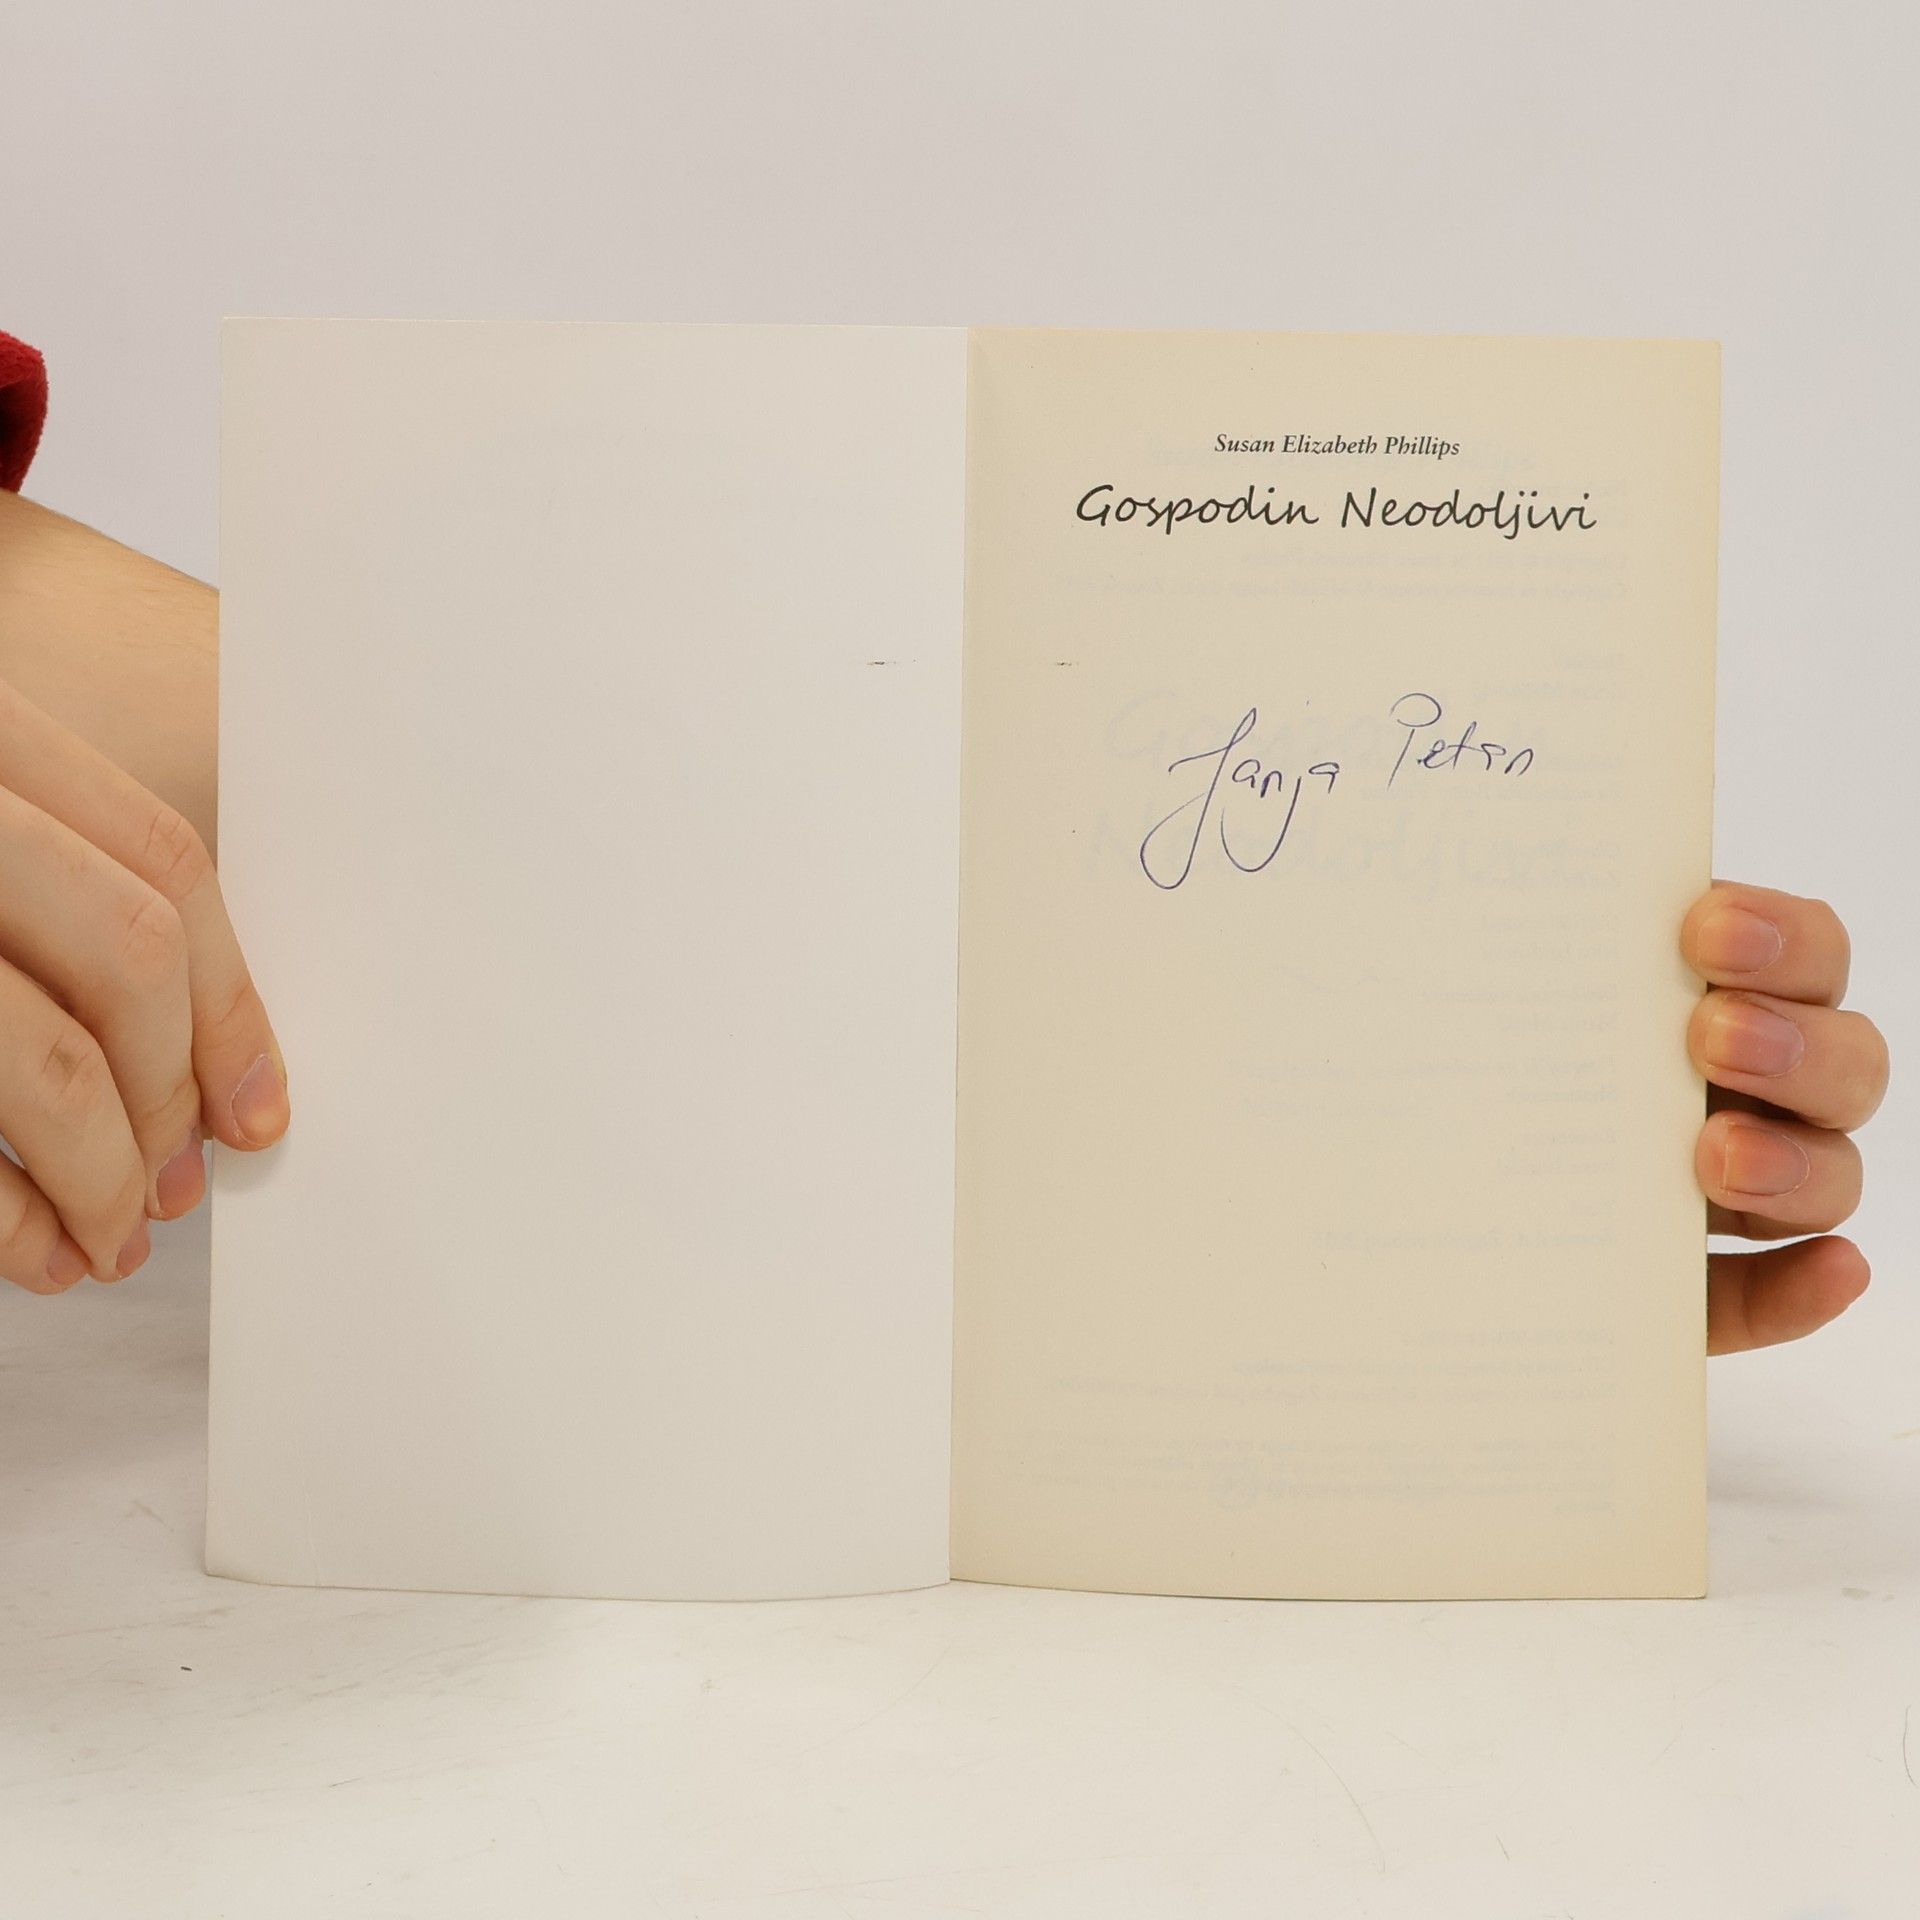 Susan Elizabeth Phillips
Gospodin Neodoljivi
Janja Petan